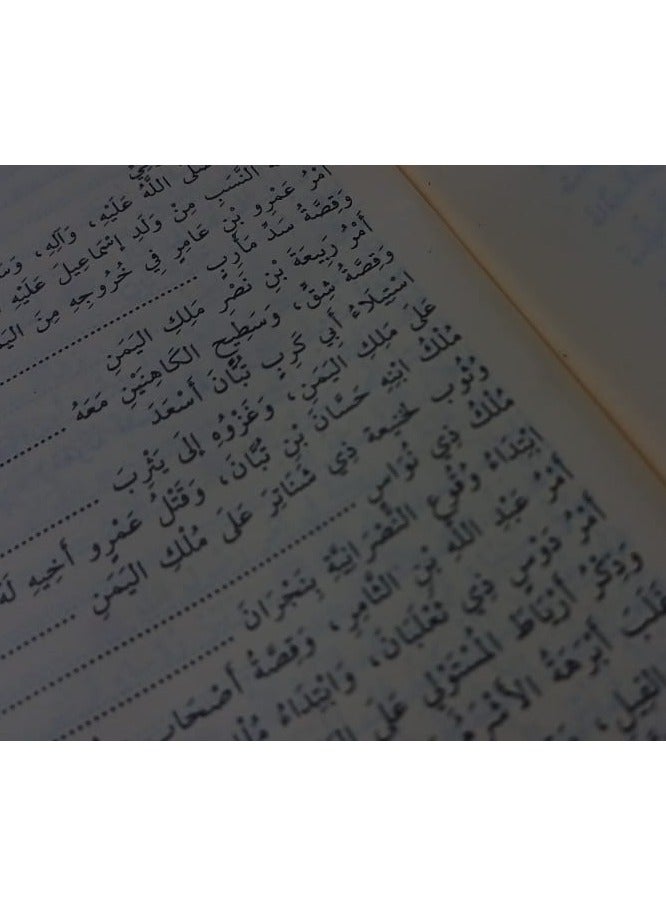 صَلَّى اللَّهُ عَلَيْهِ، وَآلِهِ، وَسَ
النَّسَبِ مِنْ وَلَدِ إِسْمَاعِيلَ عَلَيْهِ
أَمْرُ عَمْرِو بْنِ عَامِرٍ فِي خُرُوجِهِ مِنَ الْيَمَ
وَقِصَّةُ سَدِّ مَأْرِبٍ
أَمْرُ رَبِيعَةَ بْنِ نَصْرٍ مَلِكِ الْيَمَنِ
وَقِصَّةُ شِقٍّ، وَسَطِيحٍ الْكَاهِنَيْنِ مَعَهُ
اسْتِيلَاءُ أَبِي كَرِبٍ تُبَّانَ أَسْعَدَ
عَلَى مُلْكِ الْيَمَنِ، وَغَزْوُهُ إِلَى يَثْرِبَ
مُلْكُ ابْنِهِ حَسَّانَ بْنِ تُبَّانَ، وَقَتْلُ عَمْرٍو أَخِيهِ لَهُ
وُثُوبُ لَخْنِيعَةَ ذِي شَنَاتِرَ عَلَى مُلْكِ الْيَمَنِ
مُلْكُ ذِي نُوَاسٍ
ابْتِدَاءُ وُقُوعِ النَّصْرَانِيَّةِ بِنَجْرَانَ
أَمْرُ عَبْدِ اللَّهِ بْنِ الثَّامِرِ، وَقِصَّةُ أَصْحَابِ
أَمْرُ دَوْسٍ ذِي ثَعْلَبَانَ، وَابْتِدَاءُ مُلْكِ
وَذِكْرُ أَرْيَاطَ الْمُسْتَوْلِي عَلَى
غَلَبَ أَبْرَهَةُ الْأَشْرَمُ
الْفِيلِ،